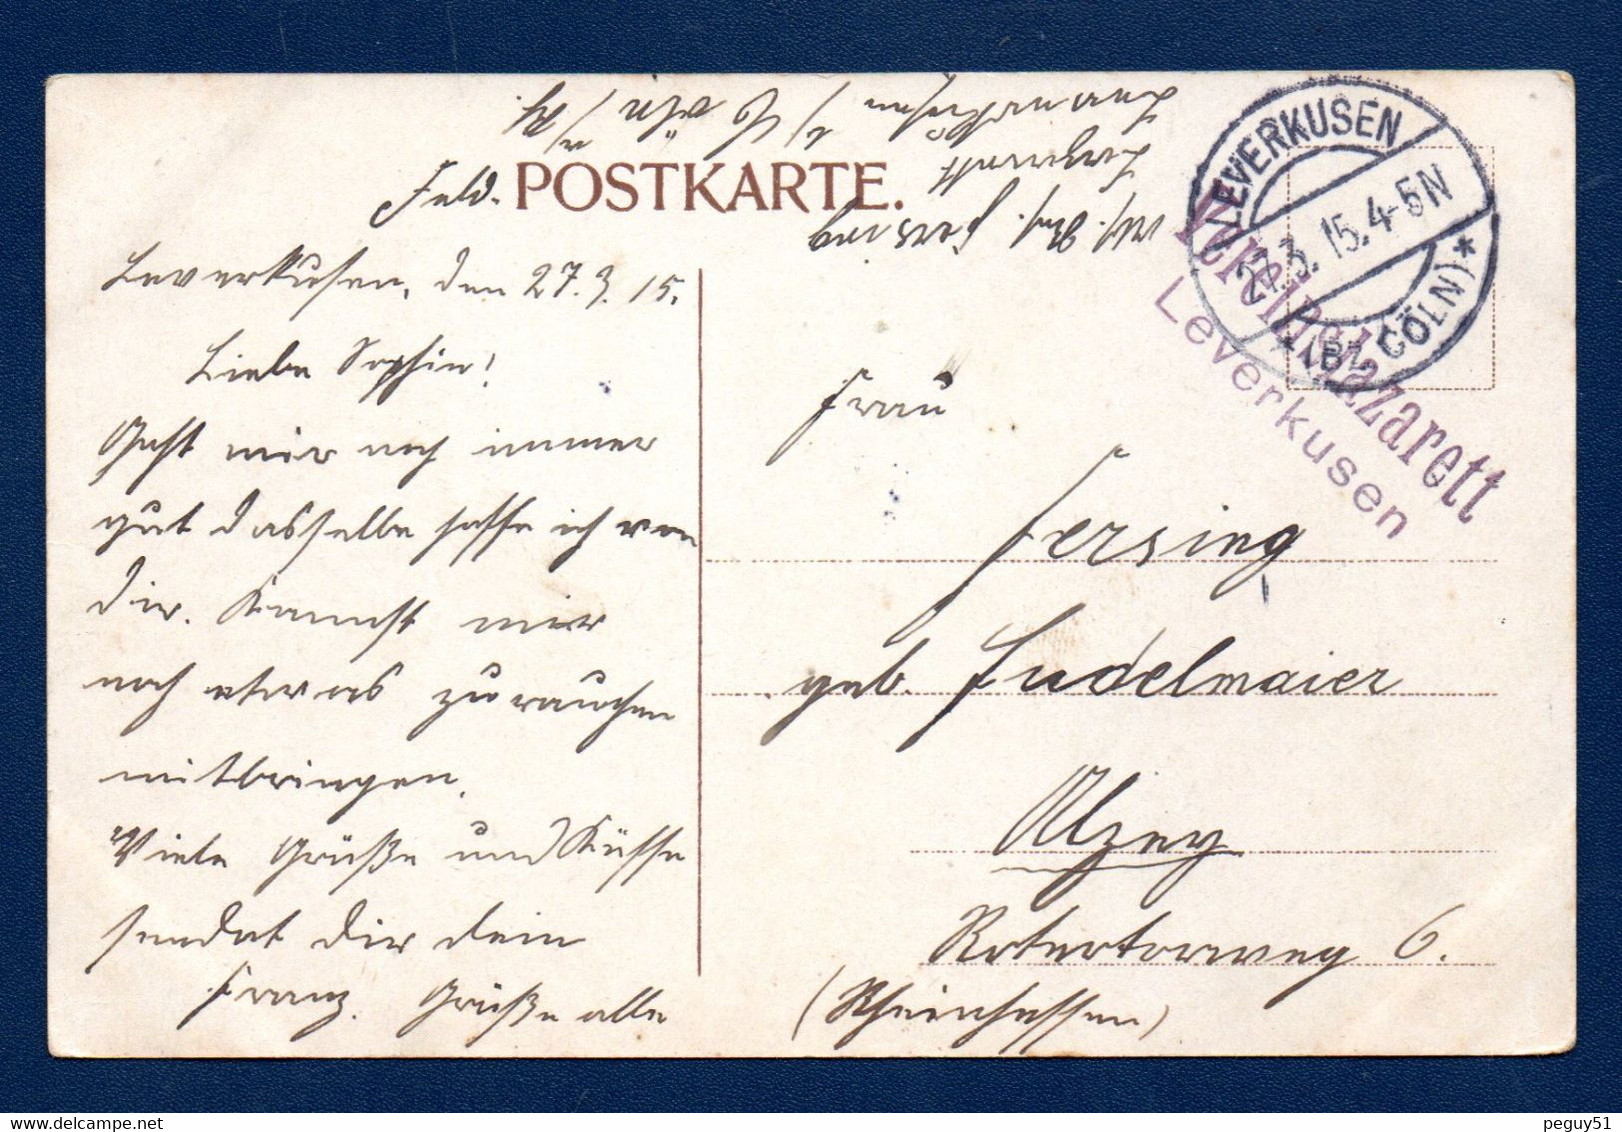 Feld-POSTKARTE.
Leverkusen, den 27.3.15.
Liebe Sophie!
Geht mir noch immer
gut dasselbe hoffe ich von
dir. Kannst mir
noch etwas zu rauchen
mitbringen.
Viele Grüße und Küsse
sendet Dir dein
Franz. Grüße alle
Fersing
Lazarett
Leverkusen b/
Cöln a/Rh.
LEVERKUSEN
27.3.15.4-5N
(BZ. CÖLN) *
Vereinslazarett
Leverkusen
Frau
Fersing
geb. Fudelmaier
Alzey
Rotentorweg 6.
(Rheinhessen)
delcampe.net
peguy51